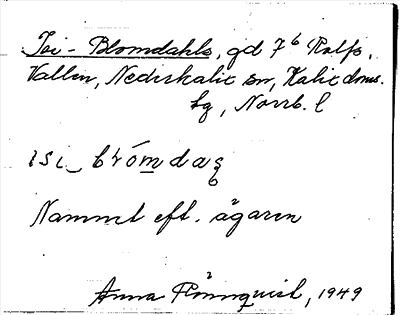 Isi-Blomdahls, gd 7⁶ Rolfs,
Vallen, Nederkalix sn, Kalix dms.
lg, Norrb. l
isi brómdaʒ
Namnet eft. ägaren
Anna Rönnquist, 1949